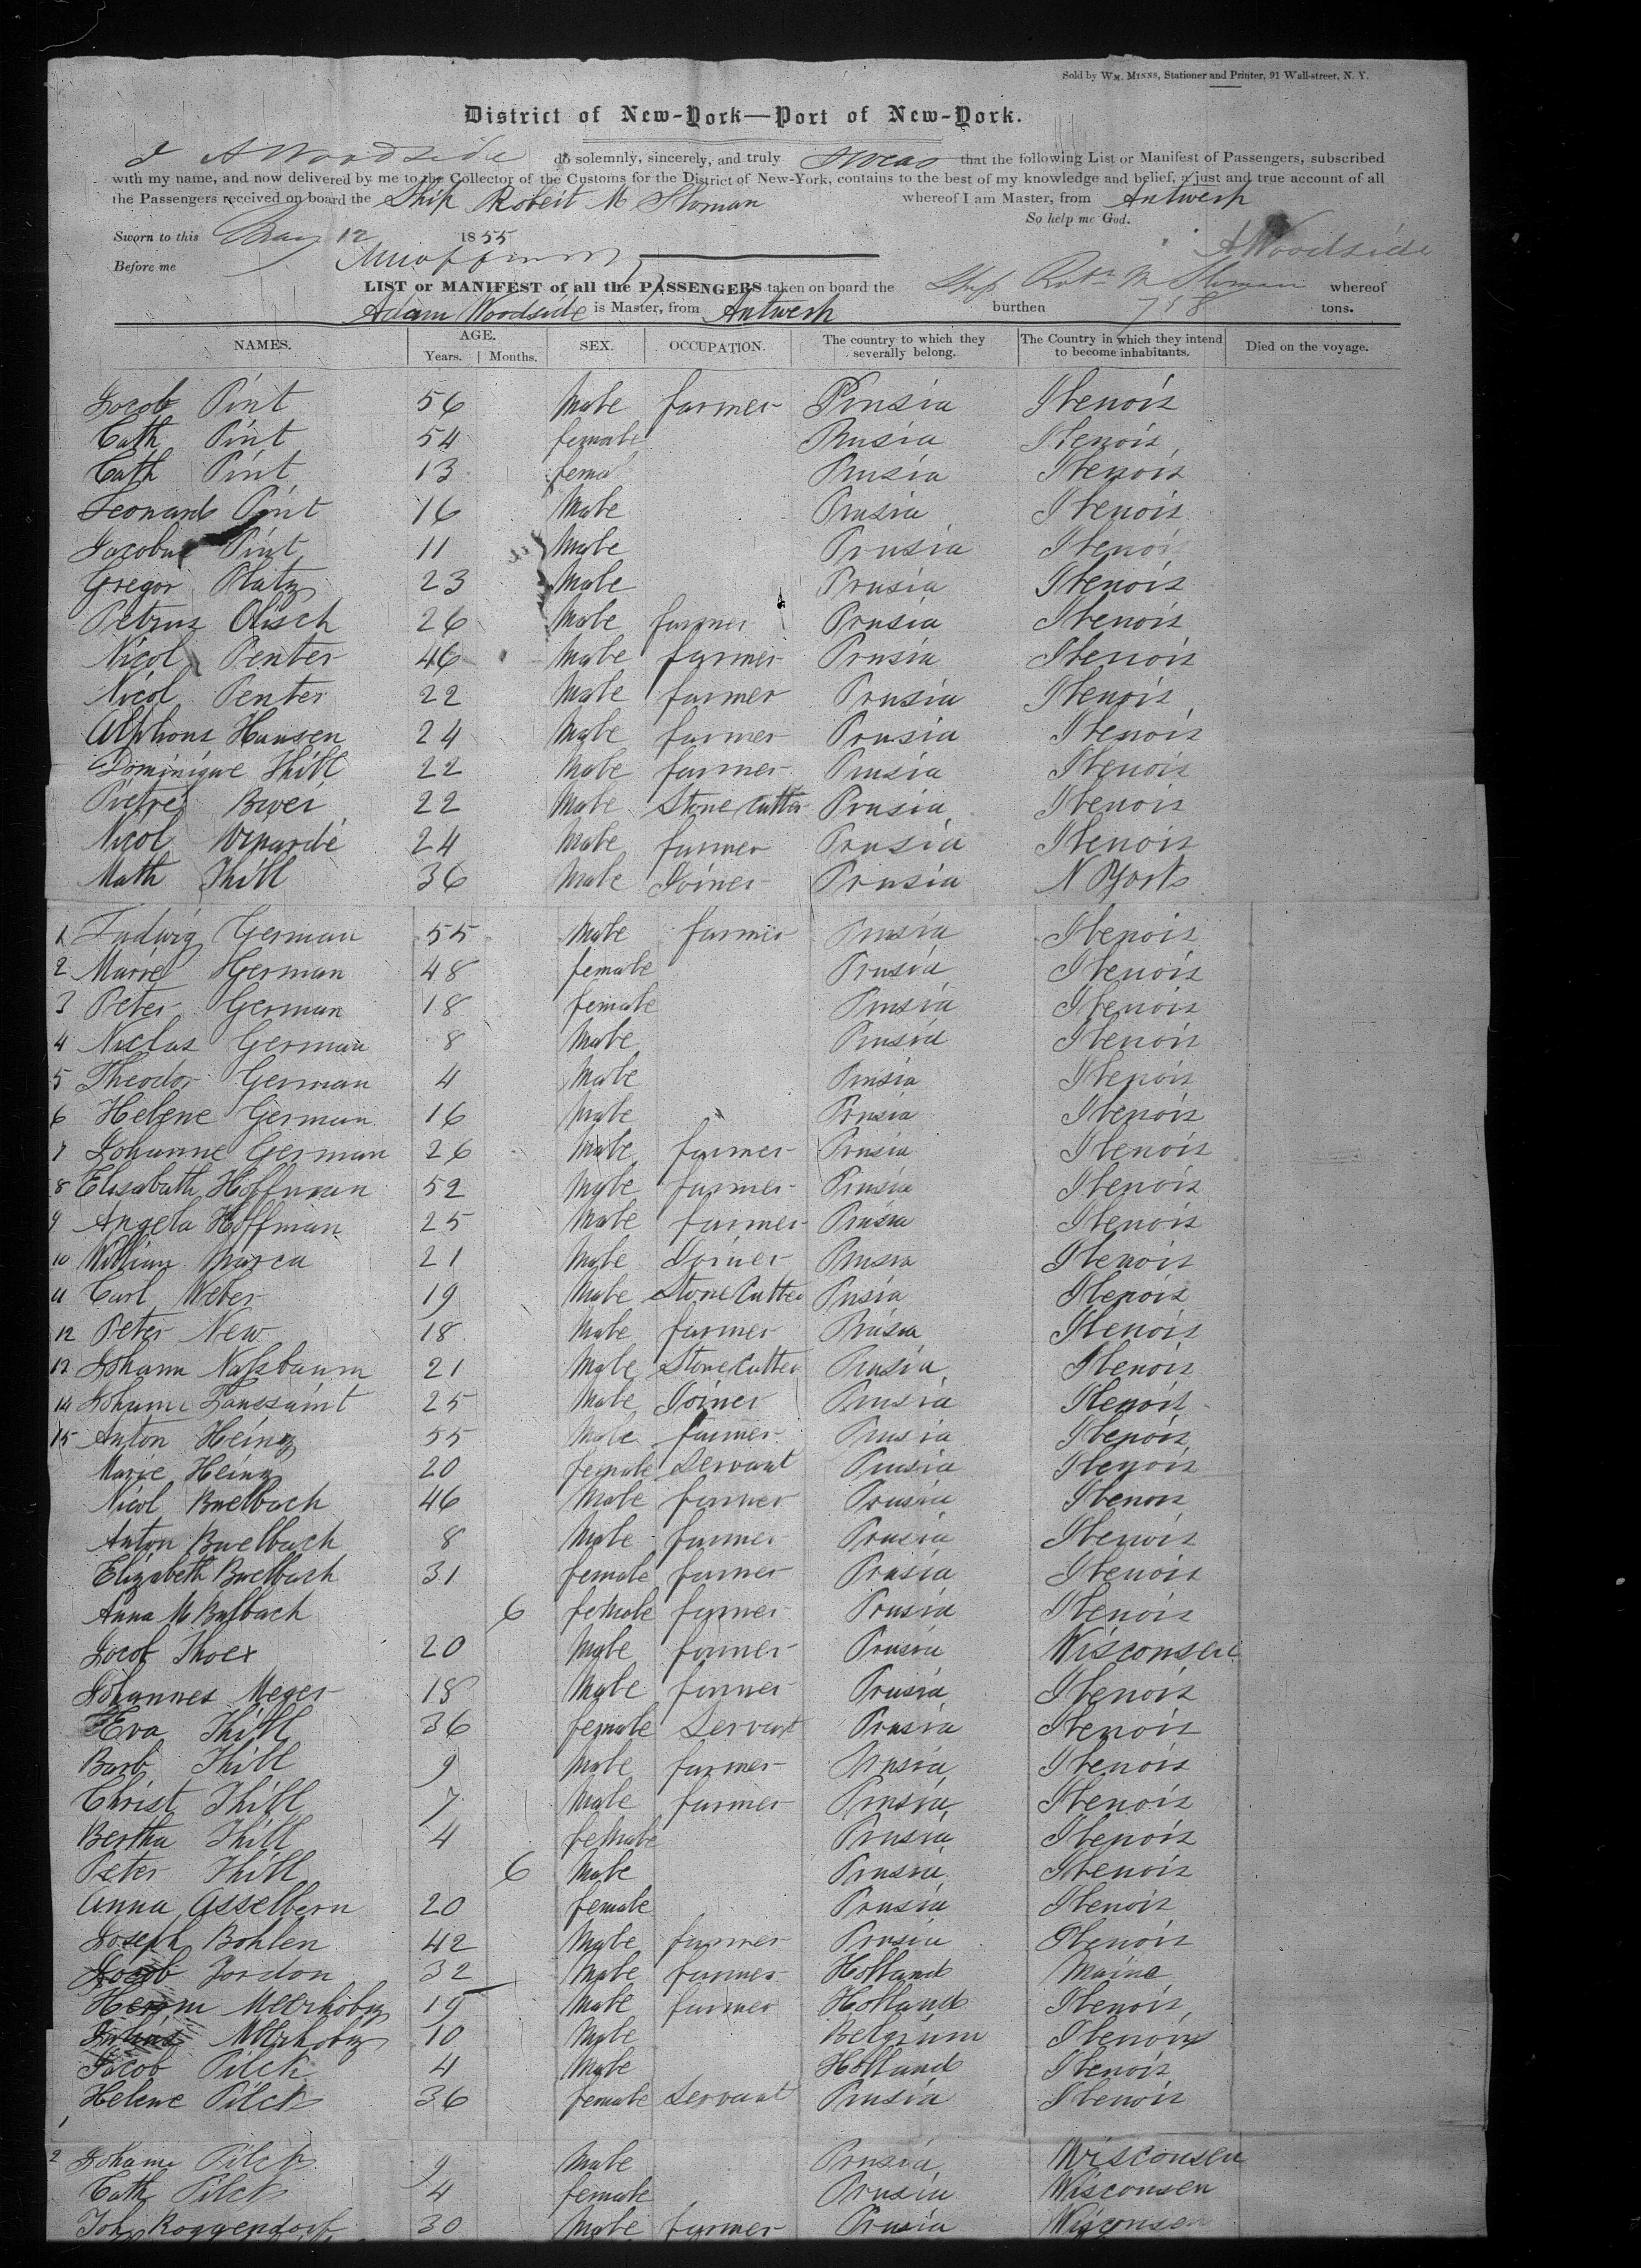 Sold by WM. MINNS, Stationer and Printer, 91 Wall-street, N. Y.
District of New-York—Port of New-York.
I A Woodside do solemnly, sincerely, and truly swear that the following List or Manifest of Passengers, subscribed
with my name, and now delivered by me to the Collector of the Customs for the District of New-York, contains to the best of my knowledge and belief, a just and true account of all
the Passengers received on board the Ship Robert M Sloman whereof I am Master, from Antwerp
So help me God.
Sworn to this May 12 1855
A Woodside
Before me
LIST or MANIFEST of all the PASSENGERS taken on board the Ship Robt M Sloman whereof
Adam Woodside is Master, from Antwerp burthen 758 tons.
NAMES. AGE. Years. Months. SEX. OCCUPATION. The country to which they severally belong. The Country in which they intend to become inhabitants. Died on the voyage.
Jacob Pint 56 Male farmer Prusia Ilenois
Cath Pint 54 female Prusia Ilenois
Cath Pint 13 femal Prusia Ilenois
Leonard Pint 16 Male Prusia Ilenois
Jacobus Pint 11 Male Prusia Ilenois
Gregor Platz 23 Male Prusia Ilenois
Petrus Olisch 26 Male farmer Prusia Ilenois
Nicol Penter 46 Male farmer Prusia Ilenois
Nicol Penter 22 Male farmer Prusia Ilenois
Alphons Hansen 24 Male farmer Prusia Ilenois
Dominique Thill 22 Male farmer Prusia Ilenois
22 Male Stone Cutter Prusia Ilenois
Nicol 24 Male farmer Prusia Ilenois
Math Thill 36 Male Joiner Prusia N York
1 Ludwig German 55 Male farmer Prusia Ilenois
2 Marie German 48 female Prusia Ilenois
3 Peter German 18 female Prusia Ilenois
4 Niclas German 8 Male Prusia Ilenois
5 Theodor German 4 Male Prusia Ilenois
6 Helene German 16 Male Prusia Ilenois
7 Johanne German 26 Male farmer Prusia Ilenois
8 Elisabath Hoffman 52 Male farmer Prusia Ilenois
9 Angela Hoffman 25 Male farmer Prusia Ilenois
10 William 21 Male Joiner Prusia Ilenois
11 Carl Weber 19 Male Stone Cutter Prusia Ilenois
12 Peter New 18 Male farmer Prusia Ilenois
13 Johann Nassbaum 21 Male Stone Cutter Prusia Ilenois
14 Johann Toussaint 25 Male Joiner Prusia Ilenois
15 Anton Heinz 55 Male farmer Prusia Ilenois
Marie Heinz 20 female Servant Prusia Ilenois
Nicol Buelbach 46 Male farmer Prusia Ilenois
Anton Buelbach 8 Male farmer Prusia Ilenois
Elizabeth Buelbach 31 female farmer Prusia Ilenois
Anna M Bulbach 6 female farmer Prusia Ilenois
Jacob 20 Male farmer Prusia Wisconsen
Johannes Meyer 18 Male farmer Prusia Ilenois
Eva Thill 36 female Servant Prusia Ilenois
Barb Thill 9 Male farmer Prusia Ilenois
Christ Thill 7 Male farmer Prusia Ilenois
Bertha Thill 4 female Prusia Ilenois
Peter Thill 6 Male Prusia Ilenois
Anna Asselbern 20 female Prusia Ilenois
Joseph Bohlen 42 Male farmer Prusia Ilenois
Jacob Jordon 32 Male farmer Holland Maine
Herm Meerkobz 19 Male farmer Holland Ilenois
Meerkobz 10 Male Belgium Ilenois
Jacob Pilck 4 Male Holland Ilenois
Helene Pilck 36 female Servant Prusia Ilenois
1
2 Johann Pilck 9 Male Prusia Wisconsen
Cath Pilck 4 female Prusia Wisconsen
Joh Roggendorf 30 Male farmer Prusia Wisconsen